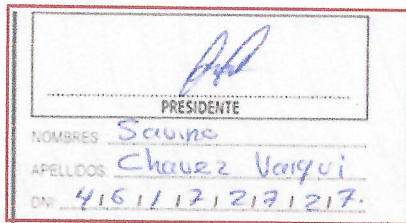 PRESIDENTE
NOMBRES Savino
APELLIDOS Chavez Varqui
DNI 46172727